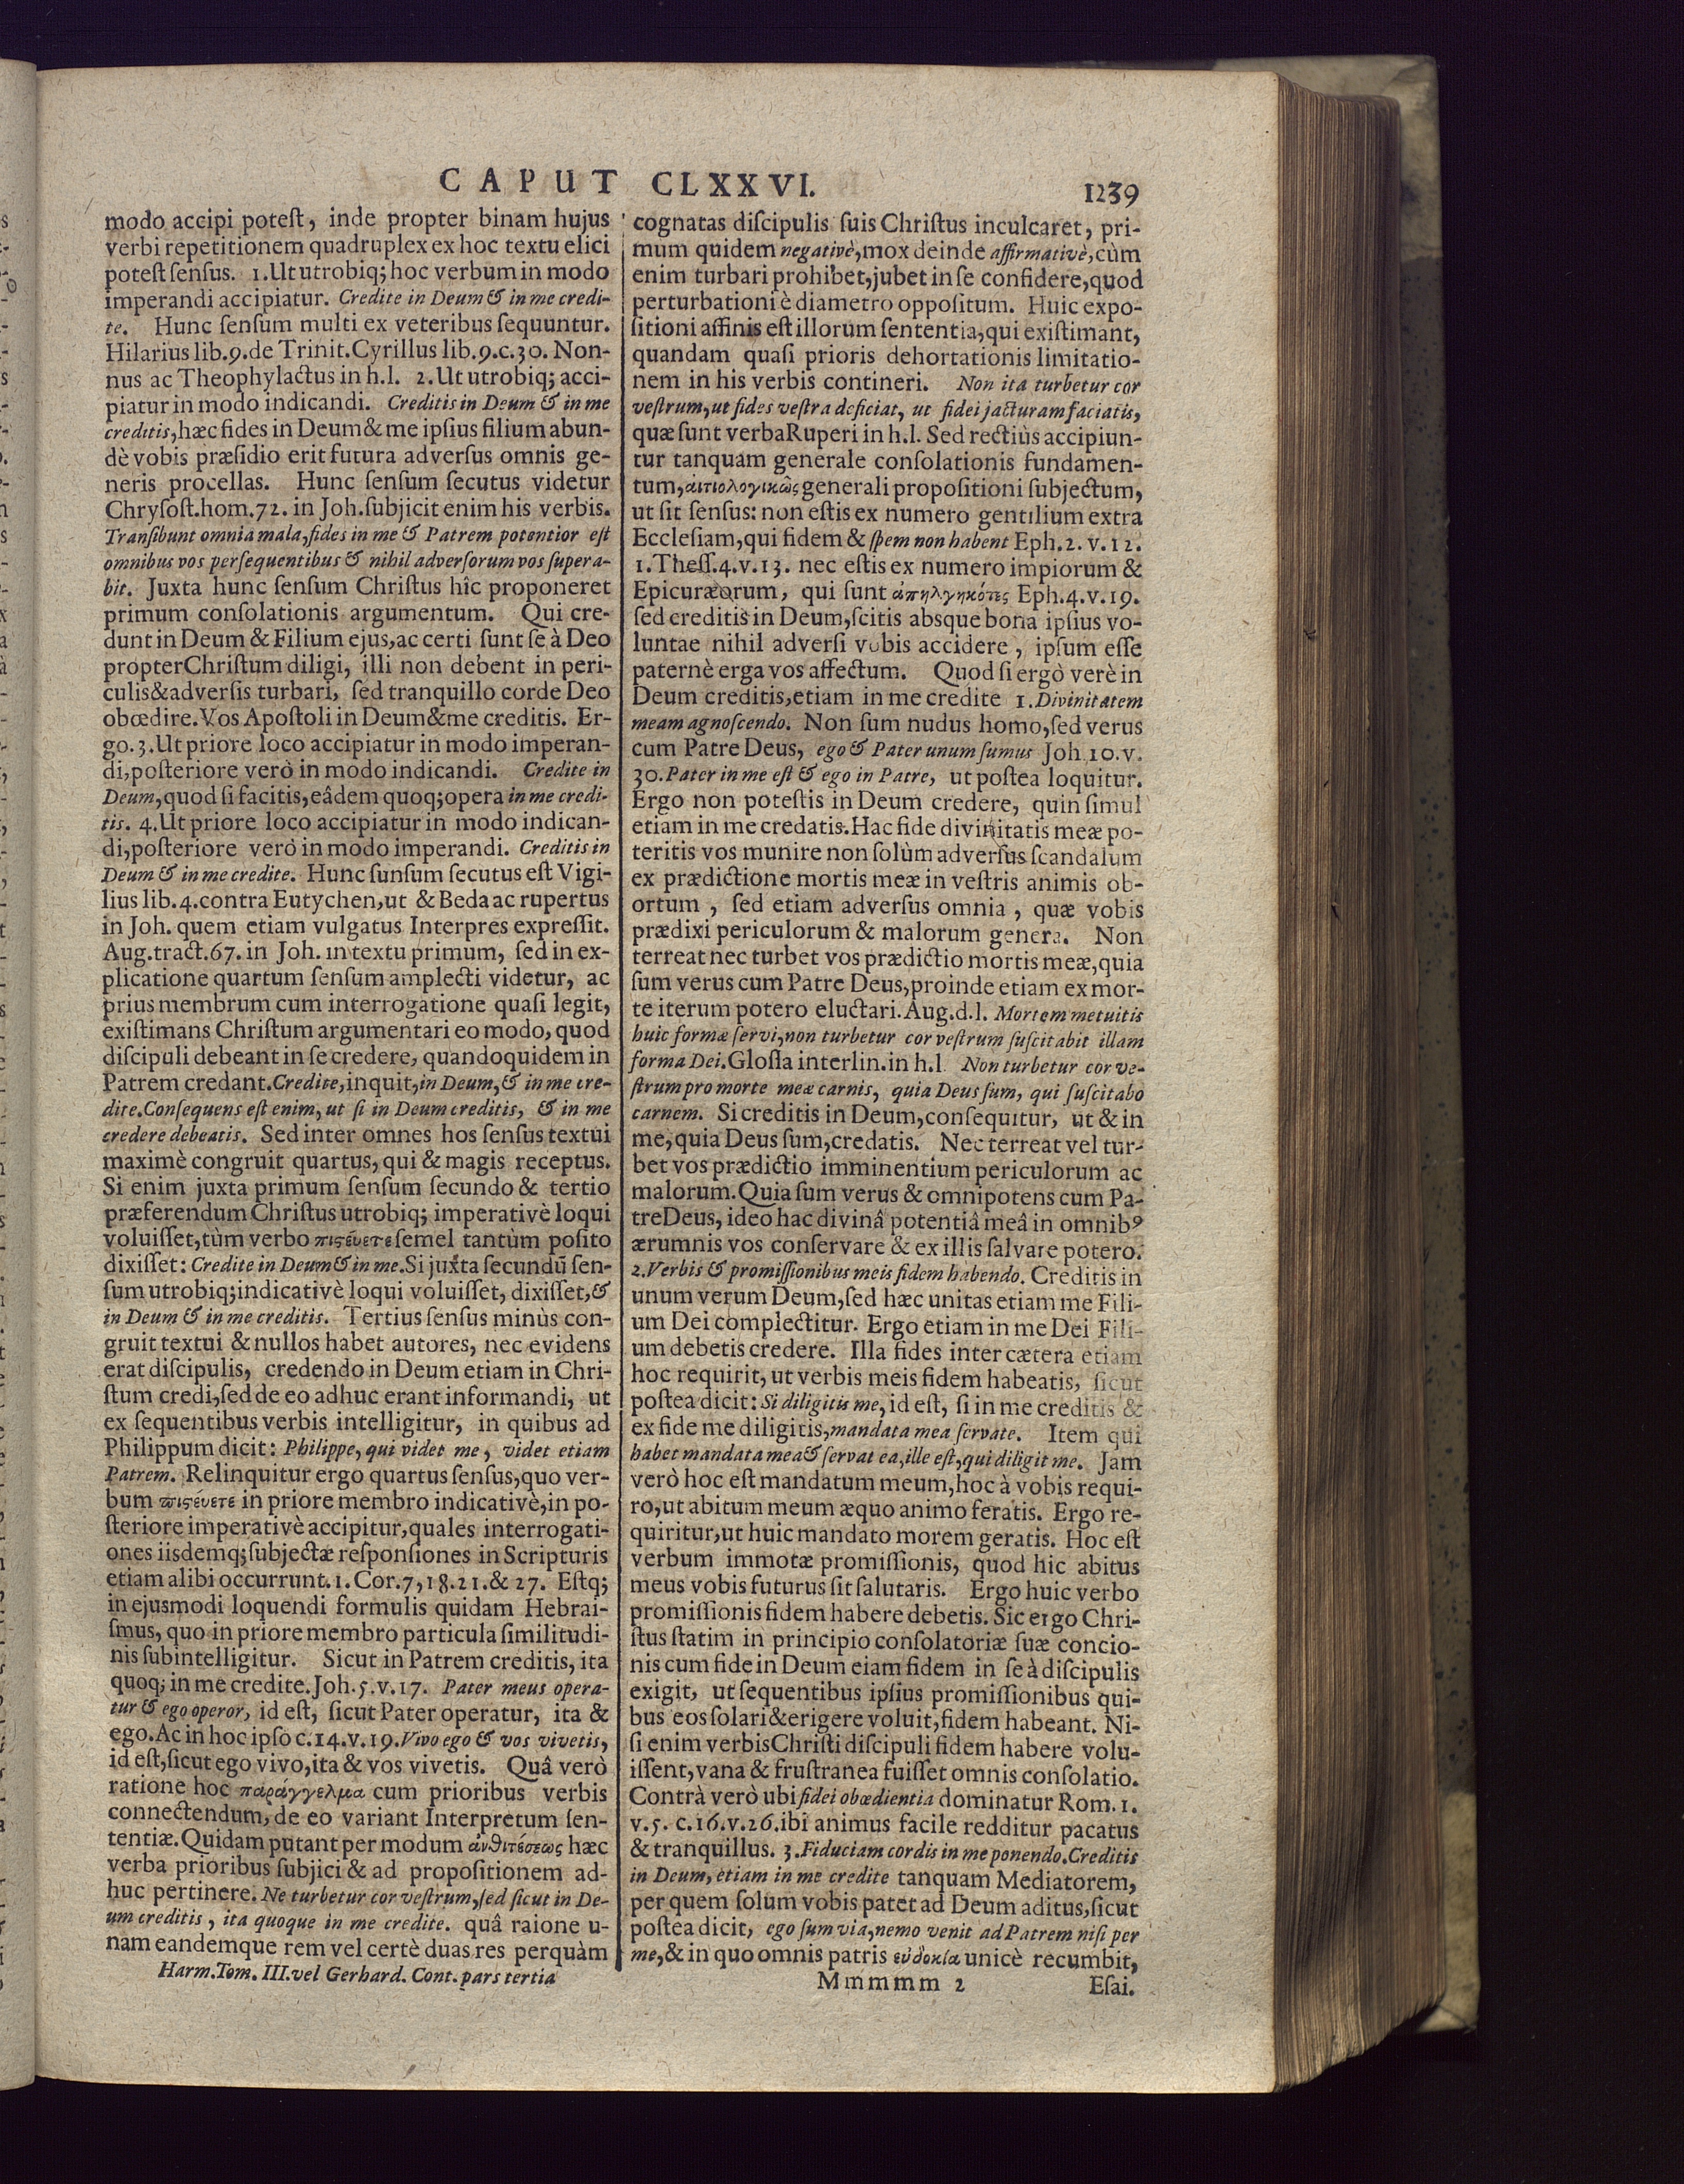 CAPUT CLXXVI. 1239
modo accipi poteſt, inde propter binam hujus
verbi repetitionem quadruplex ex hoc textu elici
poteſt ſenſus. 1. Ut utrobiq; hoc verbum in modo
imperandi accipiatur. Credite in Deum & in me credi-
te. Hunc ſenſum multi ex veteribus ſequuntur.
Hilarius lib. 9. de Trinit. Cyrillus lib. 9. c. 30. Non-
nus ac Theophylactus in h. l. 2. Ut utrobiq; acci-
piatur in modo indicandi. Creditis in Deum & in me
creditis, hæc fides in Deum & me ipſius filium abun-
dè vobis præſidio erit futura adverſus omnis ge-
neris procellas. Hunc ſenſum ſecutus videtur
Chryſoſt. hom. 72. in Joh. ſubjicit enim his verbis.
Tranſibunt omnia mala, fides in me & Patrem potentior eſt
omnibus vos perſequentibus & nihil adverſorum vos ſupera-
bit. Juxta hunc ſenſum Chriſtus hîc proponeret
primum conſolationis argumentum. Qui cre-
dunt in Deum & Filium ejus, ac certi ſunt ſe à Deo
propter Chriſtum diligi, illi non debent in peri-
culis & adverſis turbari, ſed tranquillo corde Deo
obœdire. Vos Apoſtoli in Deum & me creditis. Er-
go. 3. Ut priore loco accipiatur in modo imperan-
di, poſteriore verò in modo indicandi. Credite in
Deum, quod ſi facitis, eâdem quoq; opera in me credi-
tis. 4. Ut priore loco accipiatur in modo indican-
di, poſteriore verò in modo imperandi. Creditis in
Deum & in me credite. Hunc ſunſum ſecutus eſt Vigi-
lius lib. 4. contra Eutychen, ut & Beda ac rupertus
in Joh. quem etiam vulgatus Interpres expreſſit.
Aug. tract. 67. in Joh. in textu primum, ſed in ex-
plicatione quartum ſenſum amplecti videtur, ac
prius membrum cum interrogatione quaſi legit,
exiſtimans Chriſtum argumentari eo modo, quod
diſcipuli debeant in ſe credere, quandoquidem in
Patrem credant. Credite, inquit, in Deum, & in me cre-
dite. Conſequens eſt enim, ut ſi in Deum creditis, & in me
credere debeatis. Sed inter omnes hos ſenſus textui
maximè congruit quartus, qui & magis receptus.
Si enim juxta primum ſenſum ſecundo & tertio
præferendum Chriſtus utrobiq; imperativè loqui
voluiſſet, tùm verbo πιϛέυετε ſemel tantùm poſito
dixiſſet: Credite in Deum & in me. Si juxta ſecundū ſen-
ſum utrobiq; indicativè loqui voluiſſet, dixiſſet, &
in Deum & in me creditis. Tertius ſenſus minùs con-
gruit textui & nullos habet autores, nec evidens
erat diſcipulis, credendo in Deum etiam in Chri-
ſtum credi, ſed de eo adhuc erant informandi, ut
ex ſequentibus verbis intelligitur, in quibus ad
Philippum dicit: Philippe, qui videt me, videt etiam
Patrem. Relinquitur ergo quartus ſenſus, quo ver-
bum πιϛέυετε in priore membro indicativè, in po-
ſteriore imperativè accipitur, quales interrogati-
ones iisdemq; ſubjectæ reſponſiones in Scripturis
etiam alibi occurrunt. 1. Cor. 7, 18. 21. & 27. Eſtq;
in ejusmodi loquendi formulis quidam Hebrai-
ſmus, quo in priore membro particula ſimilitudi-
nis ſubintelligitur. Sicut in Patrem creditis, ita
quoq; in me credite. Joh. 5. v. 17. Pater meus opera-
tur & ego operor, id eſt, ſicut Pater operatur, ita &
ego. Ac in hoc ipſo c. 14. v. 19. Vivo ego & vos vivetis,
id eſt, ſicut ego vivo, ita & vos vivetis. Quâ verò
ratione hoc παράγγελμα cum prioribus verbis
connectendum, de eo variant Interpretum ſen-
tentiæ. Quidam putant per modum ἀνθιτέσεως hæc
verba prioribus ſubjici & ad propoſitionem ad-
huc pertinere. Ne turbetur cor veſtrum, ſed ſicut in De-
um creditis, ita quoque in me credite. quâ raione u-
nam eandemque rem vel certè duas res perquàm
Harm. Tom. III. vel Gerhard. Cont. pars tertia
cognatas diſcipulis ſuis Chriſtus inculcaret, pri-
mum quidem negativè, mox deinde affirmativè, cùm
enim turbari prohibet, jubet in ſe confidere, quod
perturbationi è diametro oppoſitum. Huic expo-
ſitioni affinis eſt illorum ſententia, qui exiſtimant,
quandam quaſi prioris dehortationis limitatio-
nem in his verbis contineri. Non ita turbetur cor
veſtrum, ut fides veſtra deficiat, ut fidei jacturam faciatis,
quæ ſunt verba Ruperi in h. l. Sed rectiùs accipiun-
tur tanquam generale conſolationis fundamen-
tum, ἀιτιολογικῶς generali propoſitioni ſubjectum,
ut ſit ſenſus: non eſtis ex numero gentilium extra
Eccleſiam, qui fidem & ſpem non habent Eph. 2. v. 12.
1. Theſſ. 4. v. 13. nec eſtis ex numero impiorum &
Epicuræorum, qui ſunt ἀπηλγηκότες Eph. 4. v. 19.
ſed creditis in Deum, ſcitis absque bona ipſius vo-
luntae nihil adverſi vobis accidere, ipſum eſſe
paternè erga vos affectum. Quod ſi ergò verè in
Deum creditis, etiam in me credite 1. Divinitatem
meam agnoſcendo. Non ſum nudus homo, ſed verus
cum Patre Deus, ego & Pater unum ſumus Joh. 10. v.
30. Pater in me eſt & ego in Patre, ut poſtea loquitur.
Ergo non poteſtis in Deum credere, quin ſimul
etiam in me credatis. Hac fide divinitatis meæ po-
teritis vos munire non ſolùm adverſus ſcandalum
ex prædictione mortis meæ in veſtris animis ob-
ortum, ſed etiam adverſus omnia, quæ vobis
prædixi periculorum & malorum genera. Non
terreat nec turbet vos prædictio mortis meæ, quia
ſum verus cum Patre Deus, proinde etiam ex mor-
te iterum potero eluctari. Aug. d. l. Mortem metuitis
huic formæ ſervi, non turbetur cor veſtrum ſuſcitabit illam
forma Dei. Gloſſa interlin. in h. l Non turbetur cor ve-
ſtrum pro morte meæ carnis, quia Deus ſum, qui ſuſcitabo
carnem. Si creditis in Deum, conſequitur, ut & in
me, quia Deus ſum, credatis. Nec terreat vel tur-
bet vos prædictio imminentium periculorum ac
malorum. Quia ſum verus & omnipotens cum Pa-
tre Deus, ideo hac divinâ potentiâ meâ in omnibꝰ
ærumnis vos conſervare & ex illis ſalvare potero.
2. Verbis & promiſſionibus meis fidem habendo. Creditis in
unum verum Deum, ſed hæc unitas etiam me Fili-
um Dei complectitur. Ergo etiam in me Dei Fili-
um debetis credere. Illa fides inter cætera etiam
hoc requirit, ut verbis meis fidem habeatis, ſicut
poſtea dicit: Si diligitis me, id eſt, ſi in me creditis &
ex fide me diligitis, mandata mea ſervate. Item qui
habet mandata mea & ſervat ea, ille eſt, qui diligit me. Jam
verò hoc eſt mandatum meum, hoc à vobis requi-
ro, ut abitum meum æquo animo feratis. Ergo re-
quiritur, ut huic mandato morem geratis. Hoc eſt
verbum immotæ promiſſionis, quod hic abitus
meus vobis futurus ſit ſalutaris. Ergo huic verbo
promiſſionis fidem habere debetis. Sic ergo Chri-
ſtus ſtatim in principio conſolatoriæ ſuæ concio-
nis cum fide in Deum eiam fidem in ſe à diſcipulis
exigit, ut ſequentibus ipſius promiſſionibus qui-
bus eos ſolari & erigere voluit, fidem habeant. Ni-
ſi enim verbis Chriſti diſcipuli fidem habere volu-
iſſent, vana & fruſtranea fuiſſet omnis conſolatio.
Contrà verò ubi fidei obœdientia dominatur Rom. 1.
v. 5. c. 16. v. 26. ibi animus facile redditur pacatus
& tranquillus. 3. Fiduciam cordis in me ponendo. Creditis
in Deum, etiam in me credite tanquam Mediatorem,
per quem ſolùm vobis patet ad Deum aditus, ſicut
poſtea dicit, ego ſum via, nemo venit ad Patrem niſi per
me, & in quo omnis patris εὐδοκία unicè recumbit,
Mmmmm 2 Eſai.